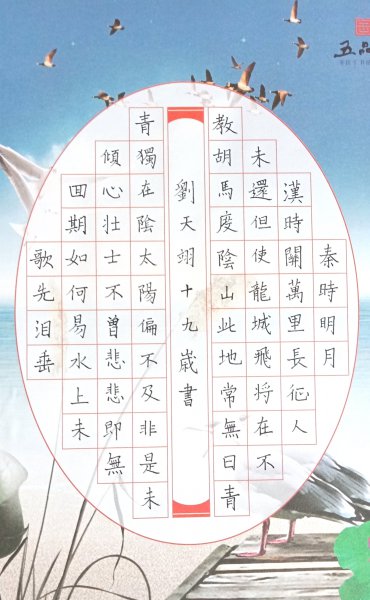 五品
秦時明月
漢時關萬里長征人
未還但使龍城飛將在不
教胡馬度陰山此地常無日青
劉天翊十九歲書
青獨在陰太陽偏不及非是未
傾心壯士不曾悲悲即無
囬期如何易水上未
歌先泪垂